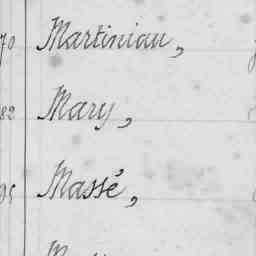 70 Martiniau,
82 Mary,
95 Massé,